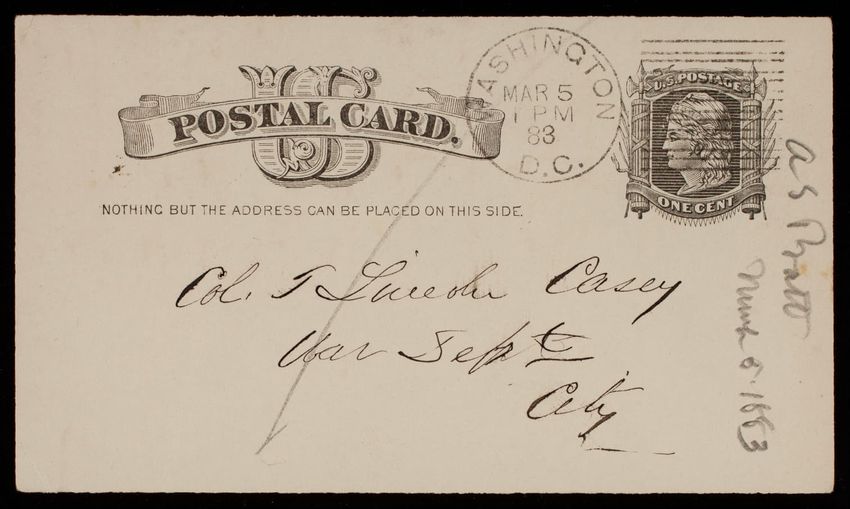 US
POSTAL CARD.
NOTHING BUT THE ADDRESS CAN BE PLACED ON THIS SIDE.
WASHINGTON
MAR 5
1 PM
83
D.C.
U.S. POSTAGE
ONE CENT
Col. T Lincoln Casey
War Dept
City
A S Pratt
March 5. 1883